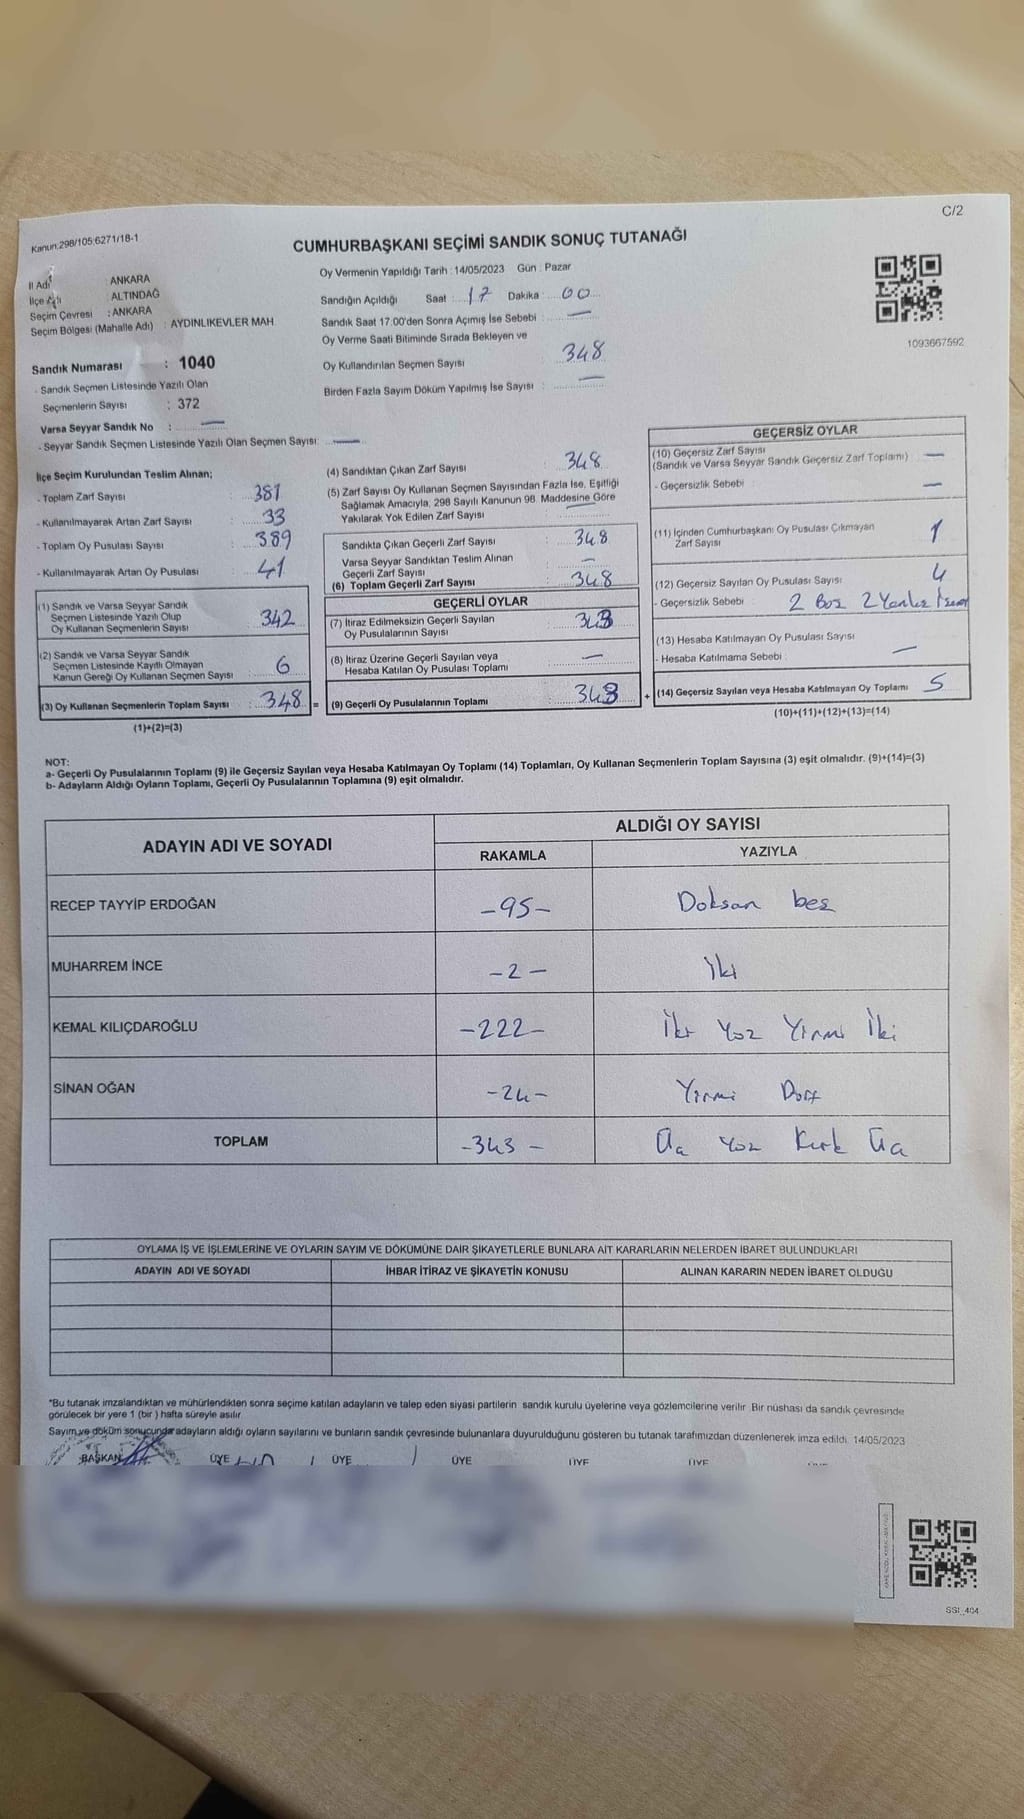 C/2
Kanun:298/105:6271/18-1
CUMHURBAŞKANI SEÇİMİ SANDIK SONUÇ TUTANAĞI
İl Adı : ANKARA
İlçe Adı : ALTINDAĞ
Seçim Çevresi : ANKARA
Seçim Bölgesi (Mahalle Adı) : AYDINLIKEVLER MAH
Sandık Numarası : 1040
- Sandık Seçmen Listesinde Yazılı Olan
Seçmenlerin Sayısı : 372
Varsa Seyyar Sandık No : —
- Seyyar Sandık Seçmen Listesinde Yazılı Olan Seçmen Sayısı: —
Oy Vermenin Yapıldığı Tarih : 14/05/2023 Gün : Pazar
Sandığın Açıldığı Saat : 17 Dakika : 00
Sandık Saat 17.00'den Sonra Açımış İse Sebebi : —
Oy Verme Saati Bitiminde Sırada Bekleyen ve
Oy Kullandırılan Seçmen Sayısı : 348
Birden Fazla Sayım Döküm Yapılmış İse Sayısı : —
1093667592
İlçe Seçim Kurulundan Teslim Alınan;
- Toplam Zarf Sayısı : 381
- Kullanılmayarak Artan Zarf Sayısı : 33
- Toplam Oy Pusulası Sayısı : 389
- Kullanılmayarak Artan Oy Pusulası : 41
(1) Sandık ve Varsa Seyyar Sandık
Seçmen Listesinde Yazılı Olup
Oy Kullanan Seçmenlerin Sayısı : 342
(2) Sandık ve Varsa Seyyar Sandık
Seçmen Listesinde Kayıtlı Olmayan
Kanun Gereği Oy Kullanan Seçmen Sayısı : 6
(3) Oy Kullanan Seçmenlerin Toplam Sayısı : 348 =
(1)+(2)=(3)
(4) Sandıktan Çıkan Zarf Sayısı : 348
(5) Zarf Sayısı Oy Kullanan Seçmen Sayısından Fazla İse, Eşitliği
Sağlamak Amacıyla, 298 Sayılı Kanunun 98. Maddesine Göre
Yakılarak Yok Edilen Zarf Sayısı : —
Sandıkta Çıkan Geçerli Zarf Sayısı : 348
Varsa Seyyar Sandıktan Teslim Alınan
Geçerli Zarf Sayısı : —
(6) Toplam Geçerli Zarf Sayısı : 348
GEÇERLİ OYLAR
(7) İtiraz Edilmeksizin Geçerli Sayılan
Oy Pusulalarının Sayısı : 343
(8) İtiraz Üzerine Geçerli Sayılan veya
Hesaba Katılan Oy Pusulası Toplamı : —
(9) Geçerli Oy Pusulalarının Toplamı : 343 +
GEÇERSİZ OYLAR
(10) Geçersiz Zarf Sayısı
(Sandık ve Varsa Seyyar Sandık Geçersiz Zarf Toplamı) : —
- Geçersizlik Sebebi : —
(11) İçinden Cumhurbaşkanı Oy Pusulası Çıkmayan
Zarf Sayısı : 1
(12) Geçersiz Sayılan Oy Pusulası Sayısı : 4
- Geçersizlik Sebebi : 2 Boş 2 Yanlış
(13) Hesaba Katılmayan Oy Pusulası Sayısı : —
- Hesaba Katılmama Sebebi :
(14) Geçersiz Sayılan veya Hesaba Katılmayan Oy Toplamı : 5
(10)+(11)+(12)+(13)=(14)
NOT:
a- Geçerli Oy Pusulalarının Toplamı (9) ile Geçersiz Sayılan veya Hesaba Katılmayan Oy Toplamı (14) Toplamları, Oy Kullanan Seçmenlerin Toplam Sayısına (3) eşit olmalıdır. (9)+(14)=(3)
b- Adayların Aldığı Oyların Toplamı, Geçerli Oy Pusulalarının Toplamına (9) eşit olmalıdır.
ADAYIN ADI VE SOYADI ALDIĞI OY SAYISI
RAKAMLA YAZIYLA
RECEP TAYYİP ERDOĞAN -95- Doksan beş
MUHARREM İNCE -2- İki
KEMAL KILIÇDAROĞLU -222- İki Yüz Yirmi İki
SİNAN OĞAN -24- Yirmi Dört
TOPLAM -343- Üç Yüz Kırk Üç
OYLAMA İŞ VE İŞLEMLERİNE VE OYLARIN SAYIM VE DÖKÜMÜNE DAİR ŞİKAYETLERLE BUNLARA AİT KARARLARIN NELERDEN İBARET BULUNDUKLARI
ADAYIN ADI VE SOYADI İHBAR İTİRAZ VE ŞİKAYETİN KONUSU ALINAN KARARIN NEDEN İBARET OLDUĞU
*Bu tutanak imzalandıktan ve mühürlendikten sonra seçime katılan adayların ve talep eden siyasi partilerin sandık kurulu üyelerine veya gözlemcilerine verilir. Bir nüshası da sandık çevresinde
görülecek bir yere 1 (bir) hafta süreyle asılır.
Sayım ve döküm sonucunda adayların aldığı oyların sayılarını ve bunların sandık çevresinde bulunanlara duyurulduğunu gösteren bu tutanak tarafımızdan düzenlenerek imza edildi. 14/05/2023
BAŞKAN ÜYE ÜYE ÜYE ÜYE ÜYE
SSI_404